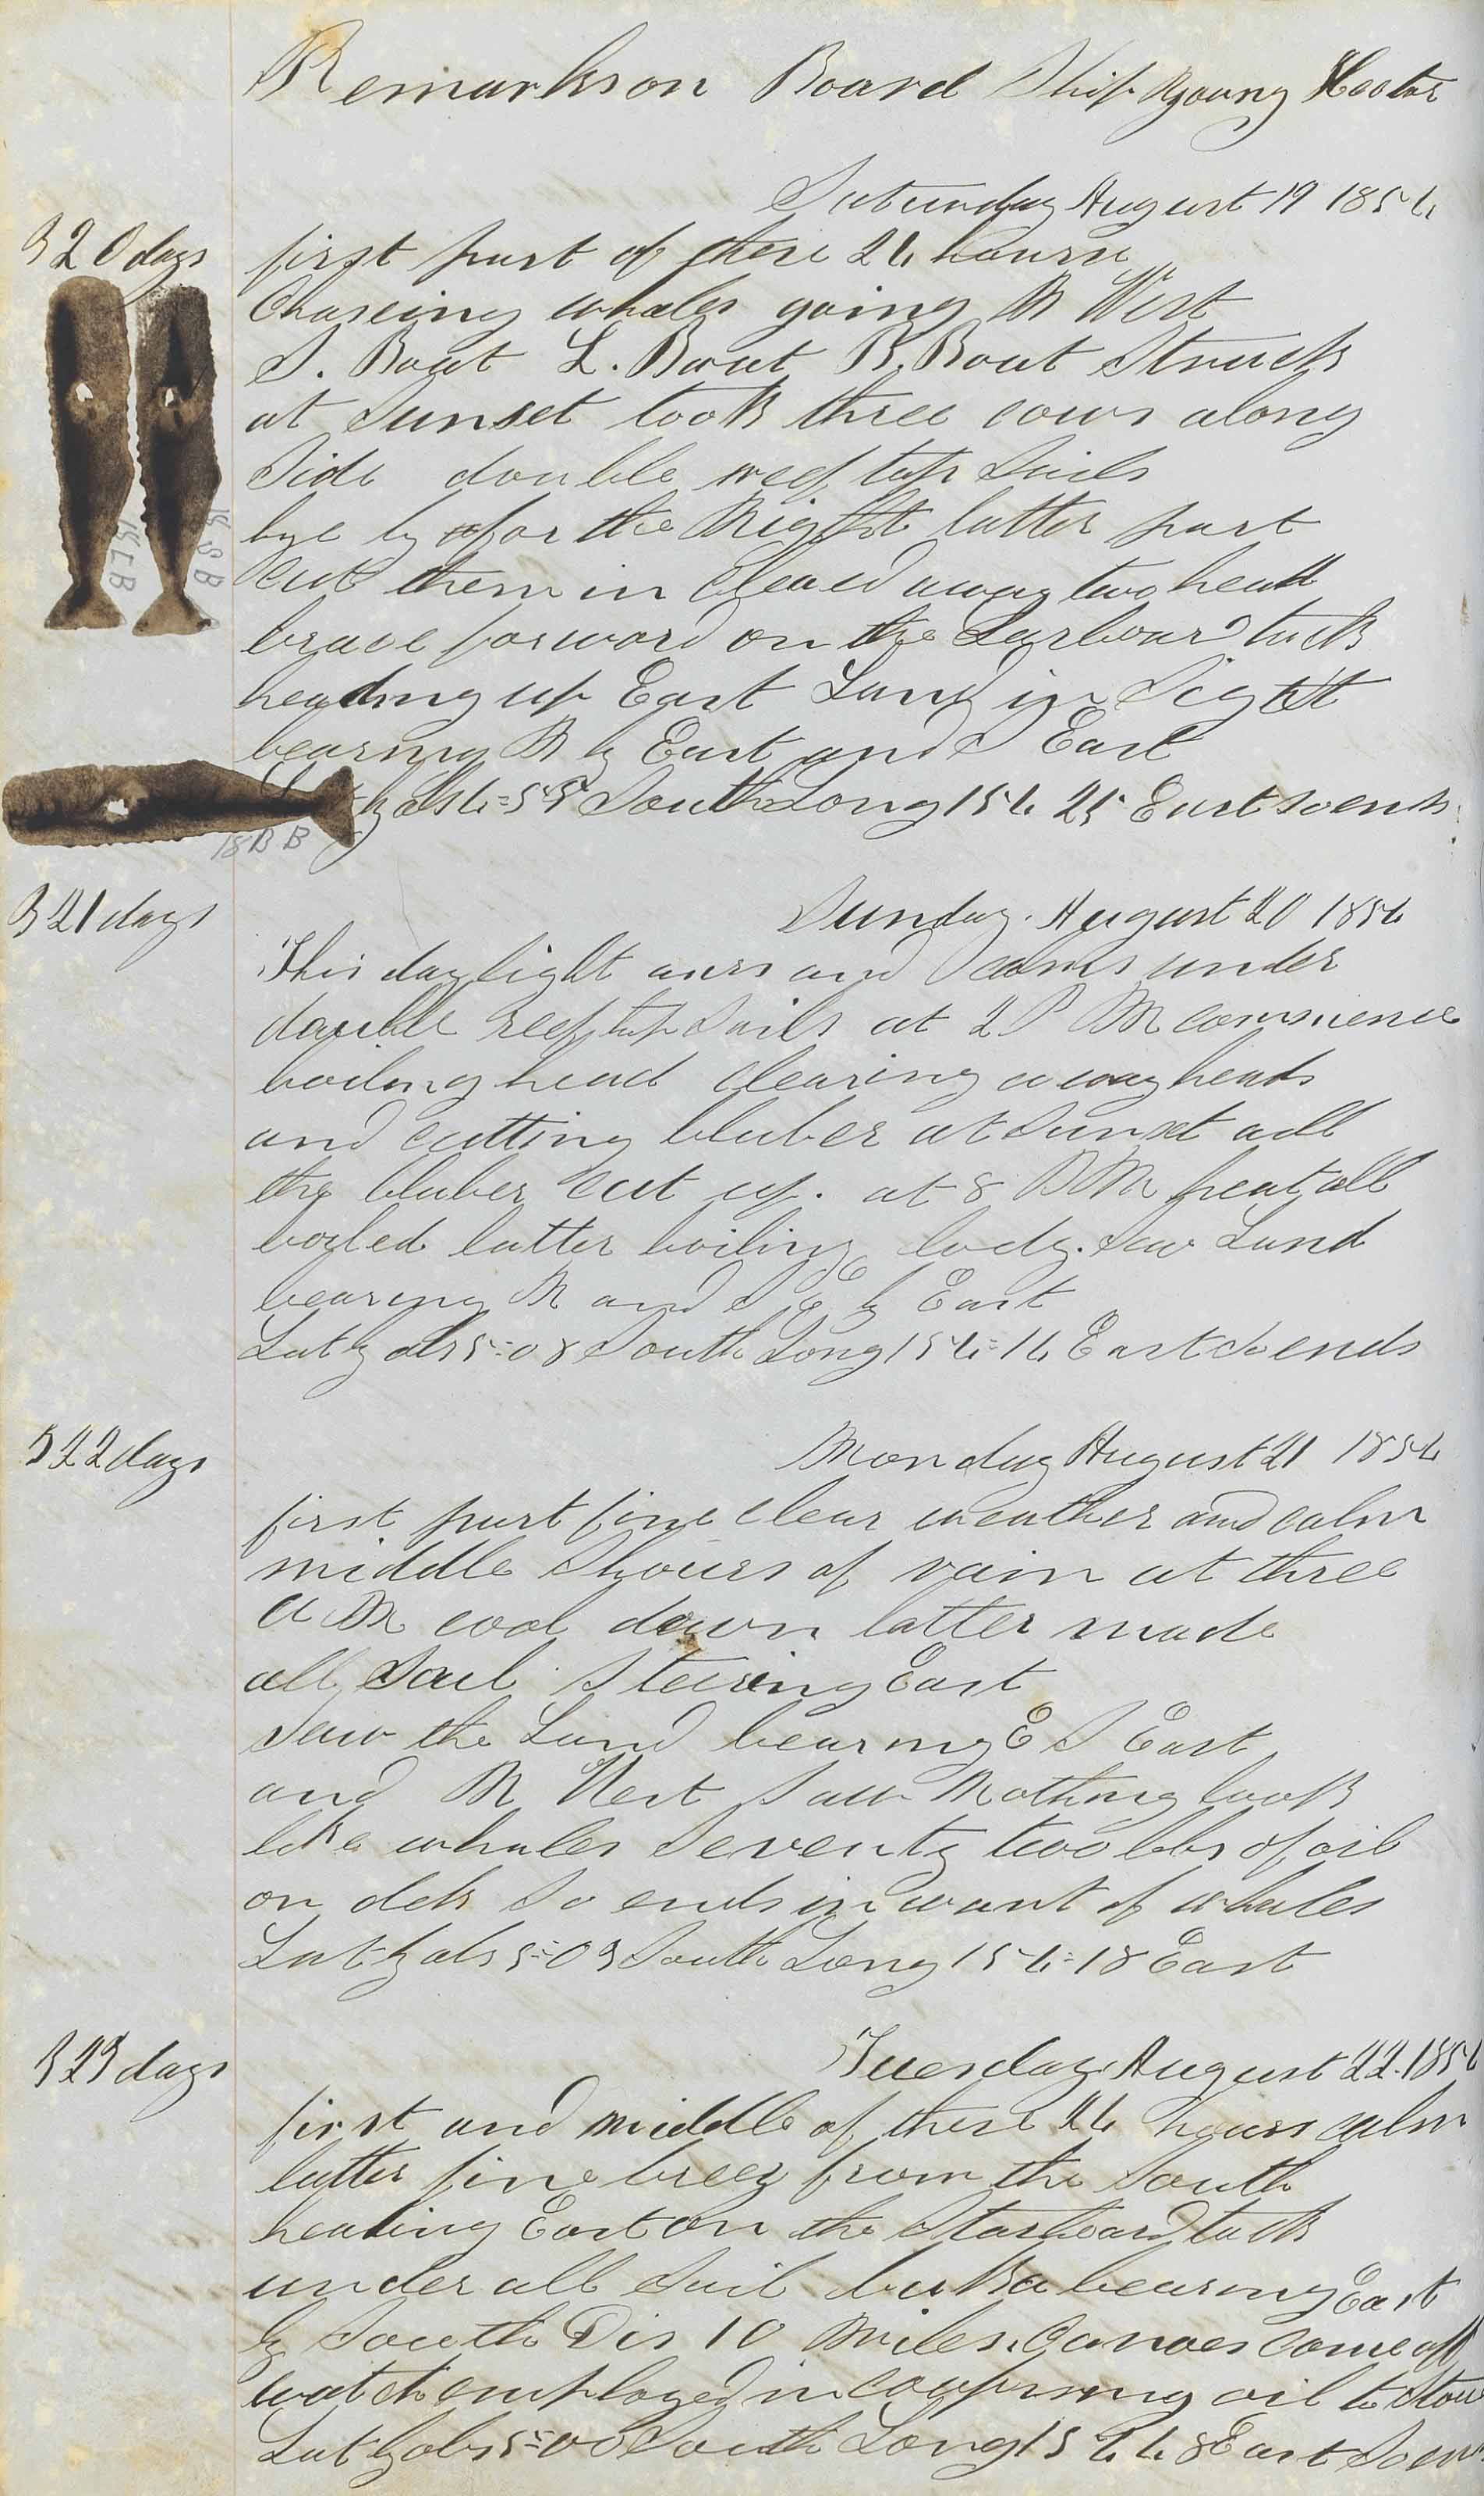 Remarks on Board Ship Young Hector
Saturday August 19 1854
320 days
first part of these 24 hours
Chaseing whales going N West
S. Boat L. Boat B. Boat Struck
at Sunset took three cows along
Side double reef top Sails
lye by for the Night latter part
Cut them in Cleared away two head
brace forward on the Larboard tack
heading up East Land in Sight
bearing N by East and S East
15 L B
15 S B
by obs 4=55 South Long 154 25 East so ends
18 B B
321 days
Sunday August 20 1854
This day light aiers and calms under
double reef top Sails at 2 P M commence
boiling head Clearing away heads
and cutting bluber at Sunset all
the bluber Cut up. at 8 P M heat all
boiled latter boiling body. Saw Land
bearing N and S E by East
Lat by obs 5=08 South Long 154=14 East So ends
322 days
Monday August 21 1854
first part fine clear weather and calm
middle Shouers of rain at three
A M cool down latter made
all Sail Steering East
Saw the Land bearing E S East
and N West Saw Nothing look
like whales Seventy two bbs of oil
on deck So ends in want of whales
Lat by obs 5=03 South Long 154=18 East
323 days
Tuesday August 22. 1854
first and middle of these 24 hours calm
latter fine breez from the South
heading East on the Starboard tack
under all Sail buka bearing East
by South Dis 10 Miles. Canoes come off
watch employed in coopering oil to Stow
Lat by obs 5=00 South Long 154 48 East So ends